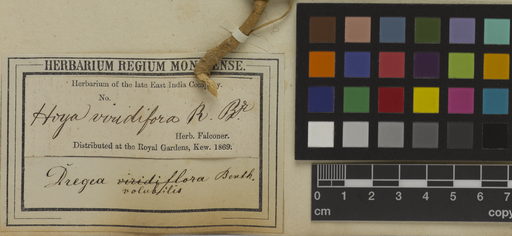 HERBARIUM REGIUM MONACENSE.
Herbarium of the late East India Company.
No.
Hoya viridifora R. Br
Herb. Falconer.
Distributed at the Royal Gardens, Kew. 1869.
Dregea viridiflora Benth.
volubilis
0 1 2 3 4 5 6 7
cm copy